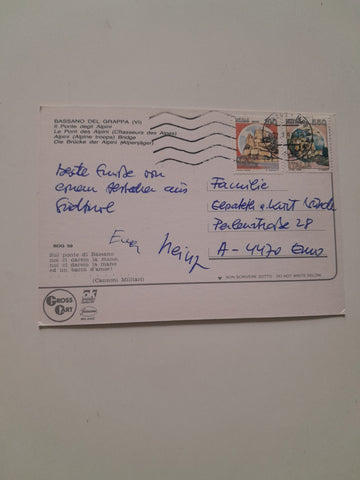 BASSANO DEL GRAPPA (VI)
Il Ponte degli Alpini
Le Pont des Alpini (Chasseurs des Alpes)
Alpini (Alpine troops) Bridge
Die Brücke der Alpini (Alpenjäger)
beste Grüße von
einem aus
Südtirol
Euer Heinz
Familie
Elisabeth u. Kurt
Perlenstraße 28
A - 4470 Enns
BDG 58
Sul ponte di Bassano
noi ci darem la mano
noi ci darem la mano
ed un bacin d'amor!
(Canzoni Militari)
GROSS
CART
NON SCRIVERE SOTTO - DO NOT WRITE BELOW